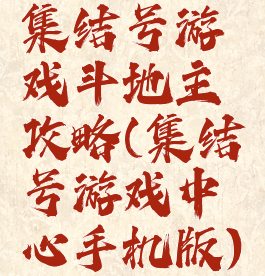 集结号游
戏斗地主
攻略(集结
号游戏中
心手机版)